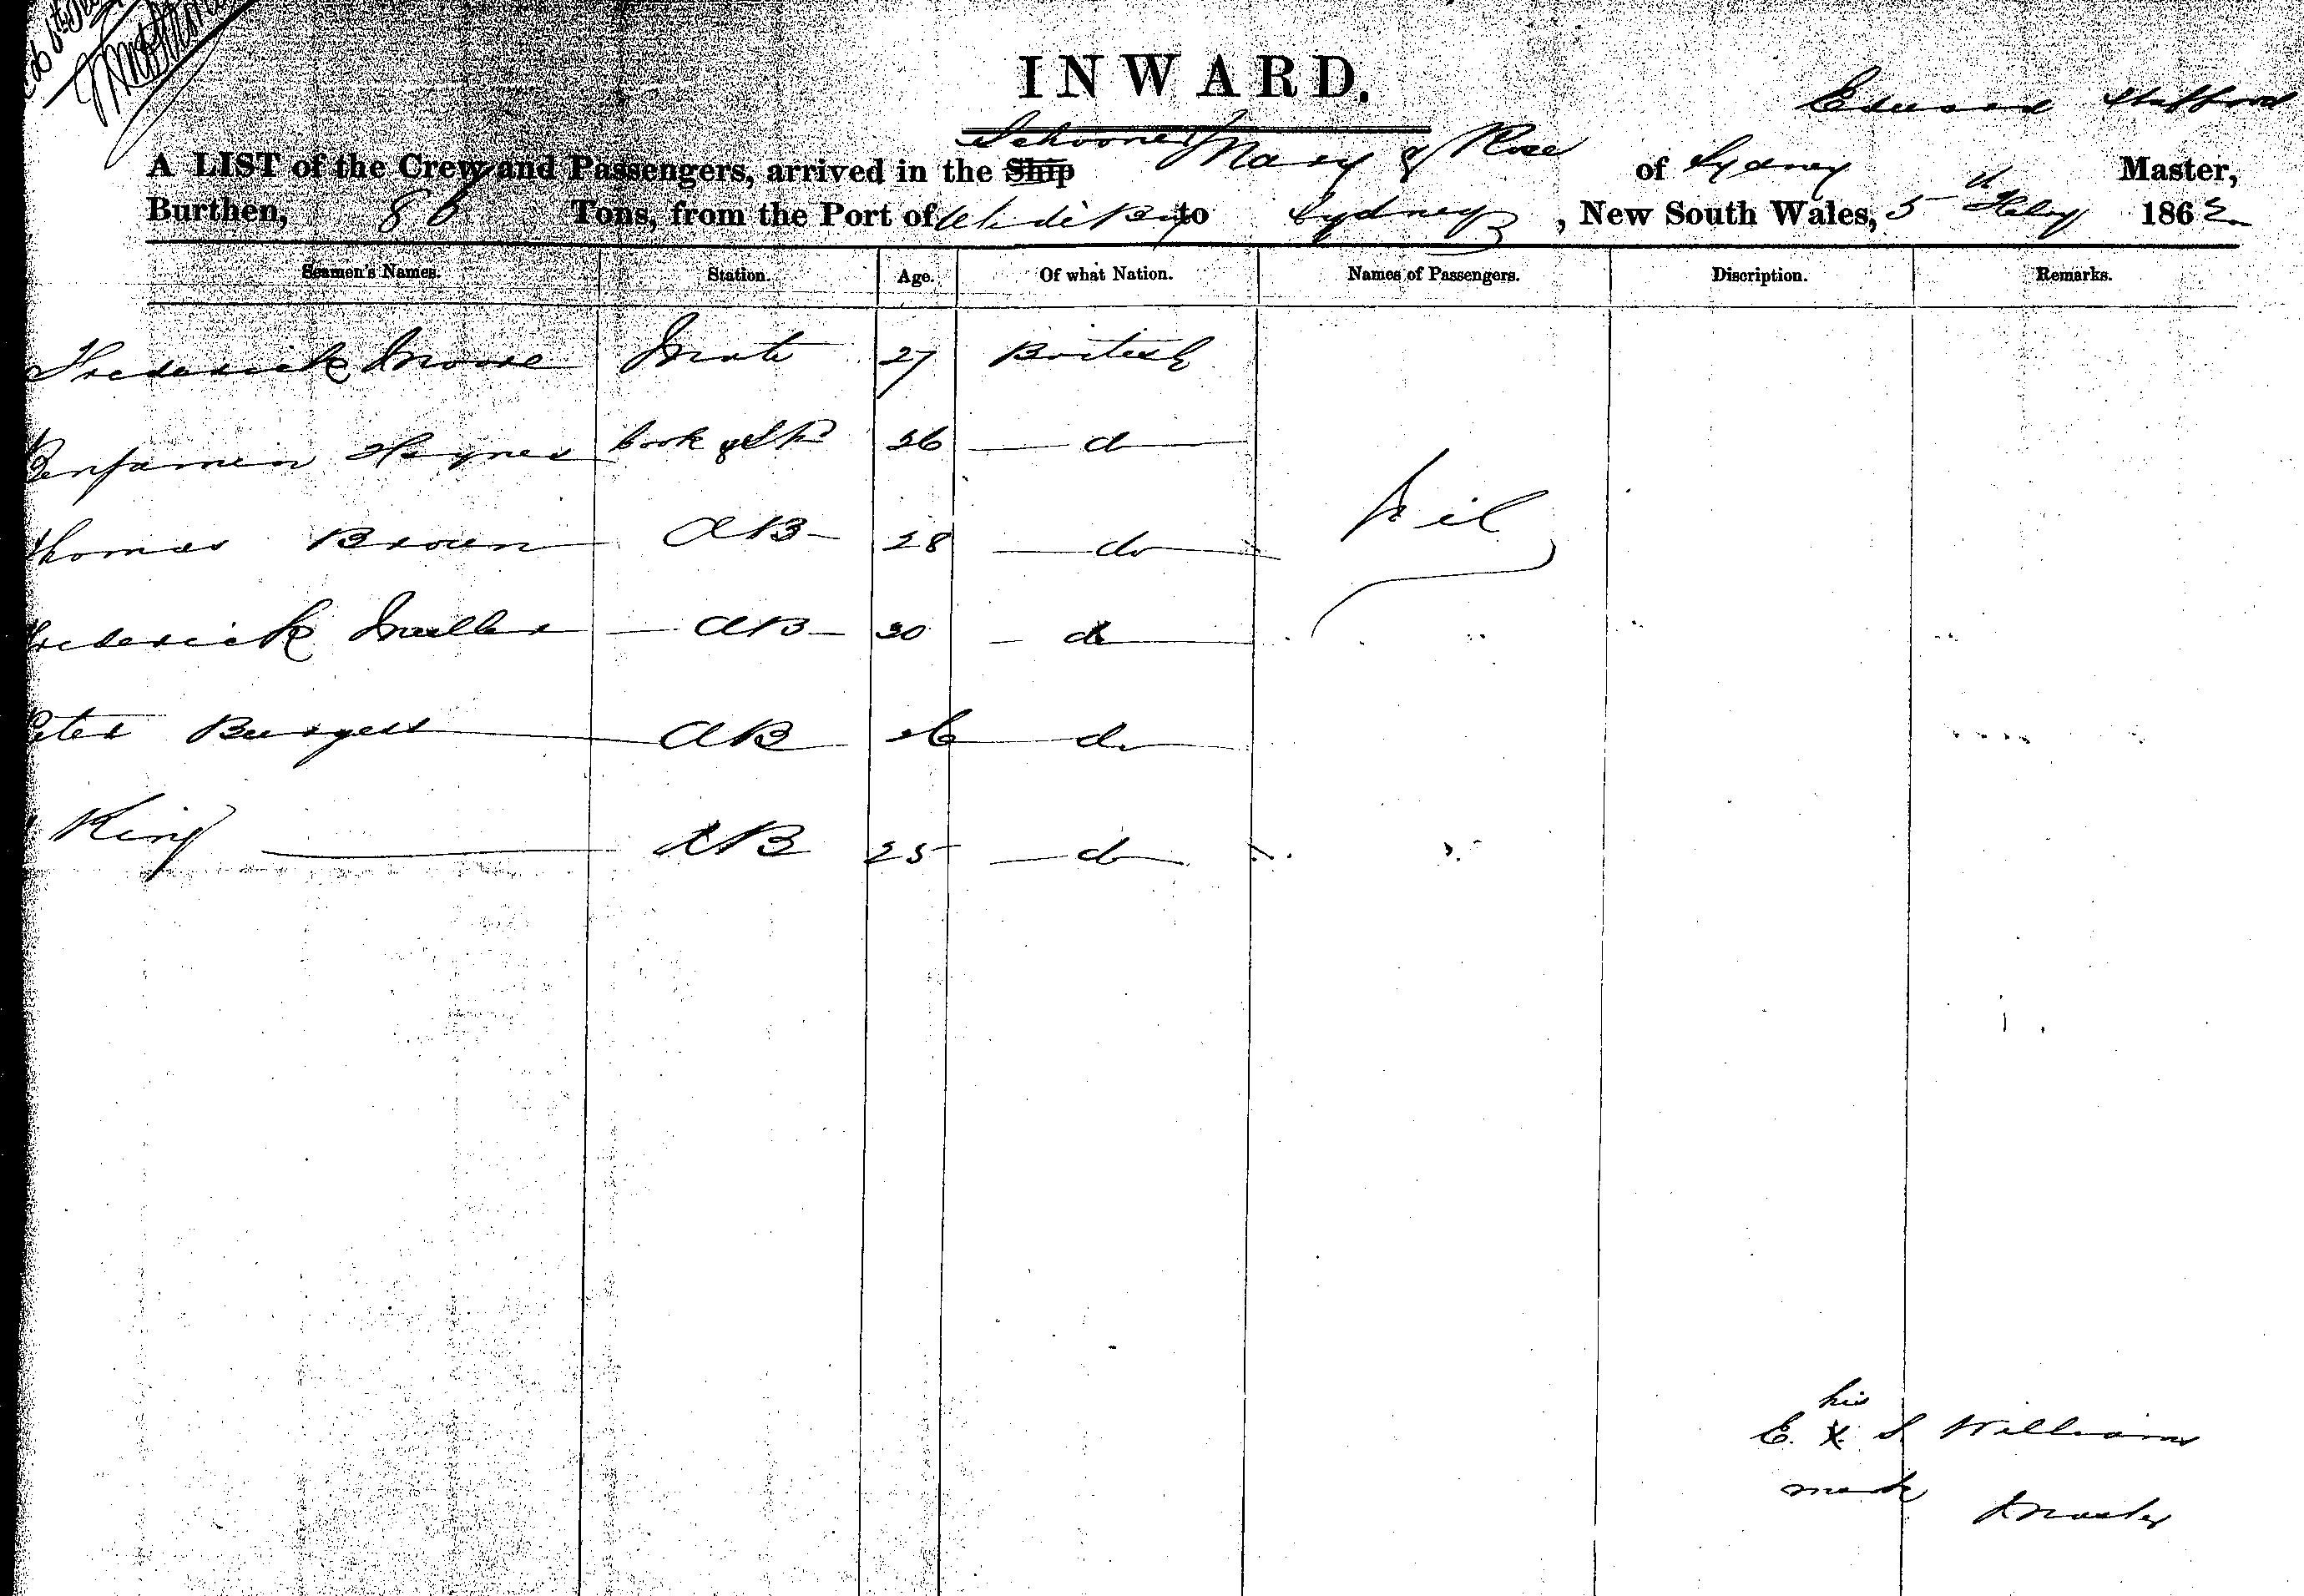 INWARD.
Edward Stafford
Schooner Mary & Rose
A LIST of the Crew and Passengers, arrived in the Ship of Sydney Master,
Burthen, 86 Tons, from the Port of to Sydney, New South Wales, 5th Feby 1862
Seamen's Names. Station. Age. Of what Nation. Names of Passengers. Discription. Remarks.
Frederick Moore Mate 27 British
Benjamin Haynes Cook & 26 do
Thomas Brown AB 28 do Nil
Frederick Muller AB 30 do
Peter Burgess AB 26 do
King AB 25 do
his
E. X S Williams
mark Master